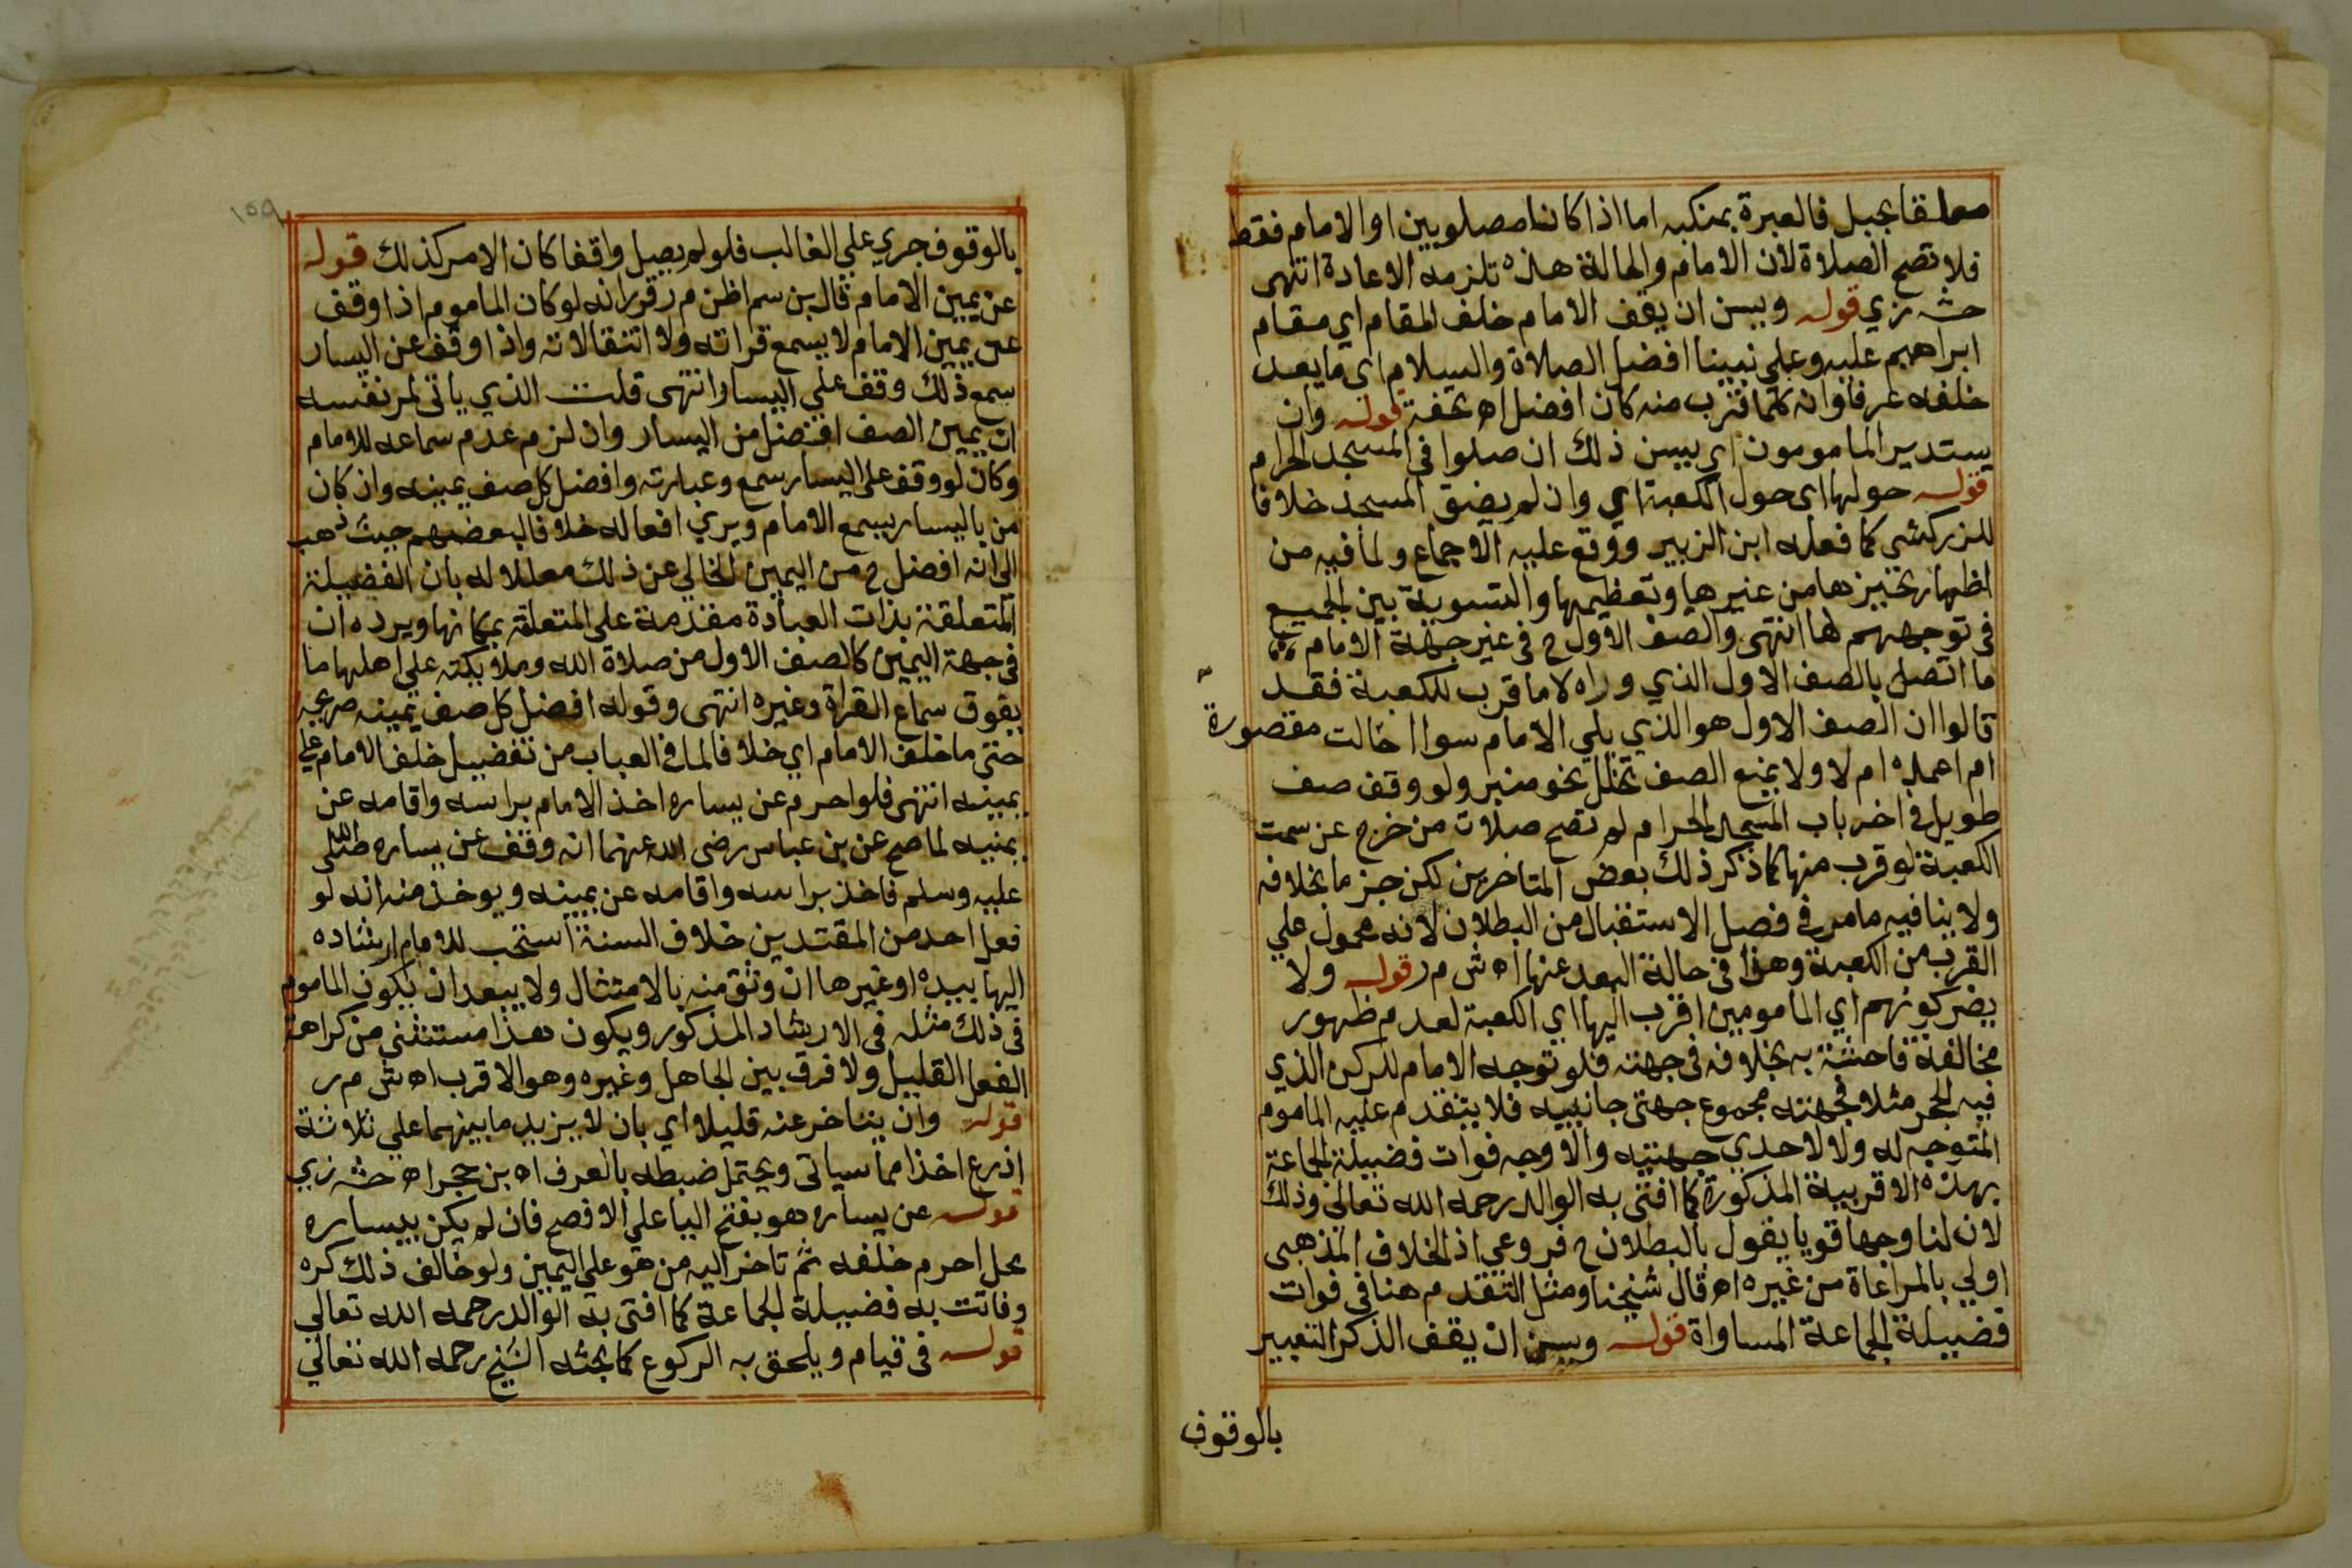 معلقا بحبل فالعبرة بمنكبه اما اذا كانا مصلوبين او الامام فقط
فلا تصح الصلاة لان الامام والحالة هذه تلزمه الاعادة انتهى
حشه زي قوله ويسن ان يقف الامام خلف المقام اي مقام
ابراهيم عليه وعلي نبينا افضل الصلاة والسلام اي ما يعد
خلفه عرفا وانه كلما قرب منه كان افضل اه تحفة قوله وان
يستدير المامومون اي يسن ذلك ان صلوا في المسجد الحرام
قوله حولها اي حول الكعبة اي وان لم يضق المسجد خلافا
للزركشي كما فعله ابن الزبير ووقع عليه الاجماع ولما فيه من
اظهار تمييزها من غيرها وتعظيمها والتسوية بين الجميع
في توجههم لها انتهى والصف الاول ح في غير جهة الامام
ما اتصل بالصف الاول الذي وراه لا ما قرب للكعبة فقد
قالوا ان الصف الاول هو الذي يلي الامام سوا احالت مقصورة
ام اعمدة ام لا ولا يمنع الصف تخلل نحو منبر ولو وقف صف
طويل في اخر باب المسجد الحرام لم تصح صلاة من خرج عن سمت
الكعبة لو قرب منها كما ذكر ذلك بعض المتاخرين لكن جزما بخلافه
ولا ينافيه ما مر في فصل الاستقبال من البطلان لانه محمول علي
القرب من الكعبة وهذا في حالة البعد عنها اه ش م ر قوله ولا
يضر كونهم اي المامومين اقرب اليها اي الكعبة لعدم ظهور
مخالفة فاحشة به بخلافه في جهته فلو توجه الامام للركن الذي
فيه الحجر مثلا فجهته مجموع جهتي جانبيه فلا يتقدم عليه الماموم
المتوجه له ولا لاحدي جهتيه والاوجه فوات فضيلة الجماعة
بهذه الاقربية المذكورة كما افتى به الوالد رحمه الله تعالى وذلك
لان لنا وجها قويا يقول بالبطلان ح فروعي اذ الخلاف المذهبى
اولي بالمراعاة من غيره اه قال شيخنا ومثل التقدم هنا في فوات
فضيلة الجماعة المساواة قوله ويسن ان يقف الذكر التعبير
بالوقوف
١٥٩
بالوقوف جري علي الغالب فلو لم يصل واقفا كان الامر كذلك قوله
عن يمين الامام قال بن سم اظن م ر قرر انه لو كان الماموم اذا وقف
عن يمين الامام لا يسمع قراته ولا انتقالاته واذا وقف عن اليسار
سمع ذلك وقف علي اليسار انتهى قلت الذي ياتى لمر نفسه
ان يمين الصف افضل من اليسار وان لزم عدم سماعه للامام
وكان لو وقف علي اليسار سمع وعبارته وافضل كل صف يمينه وان كان
من باليسار يسمع الامام ويري افعاله خلافا لبعضهم حيث ذهب
الي انه افضل ح من اليمين الخالي عن ذلك معللا له بان الفضيلة
المتعلقة بذات العبادة مقدمة على المتعلقة بمكانها ويرده ان
في جهة اليمين كالصف الاول من صلاة الله وملايكته علي اهلها ما
يفوق سماع القراة وغيره انتهى وقوله افضل كل صف يمينه صريحه
حتى ما خلف الامام اي خلافا لما في العباب من تفضيل خلف الامام علي
يمينه انتهى فلو احرم عن يساره اخذ الامام براسه واقامه عن
يمنيه لما صح عن بن عباس رضي الله عنهما انه وقف عن يساره صلى الله
عليه وسلم فاخذ براسه واقامه عن يمينه ويوخذ منه انه لو
فعل احد من المقتدين خلاف السنة استحب للامام ارشاده
اليها بيده او غيرها ان وثق منه بالامتثال ولا يبعد ان يكون الماموم
في ذلك مثله في الارشاد المذكور ويكون هذا مستثني من كراهة
الفعل القليل ولا فرق بين الجاهل وغيره وهو الاقرب اه ش م ر
قوله وان يتاخر عنه قليلا اي بان لا يزيد ما بينهما علي ثلاثة
اذرع اخذا مما سياتى ويحتمل ضبطه بالعرف اه بن حجر اه حشه زي
قوله عن يساره هو بفتح اليا علي الافصح فان لم يكن بيساره
محل احرم خلفه ثم تاخر اليه من هو علي اليمين ولو خالف ذلك كره
وفاتت به فضيلة الجماعة كما افتى به الوالد رحمه الله تعالي
قوله في قيام ويلحق به الركوع كما بحثه الشيخ رحمه الله تعالي